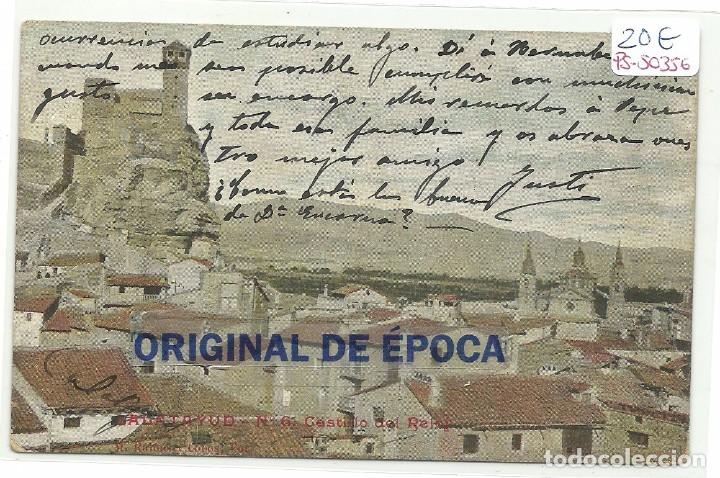 20€
PS-50356
ocurrencias de estudiar algo. Dí á Bernabe
cuando me sea posible cumpliré con muchísimo
gusto su encargo. Mis recuerdos á Pepe
y toda esa familia y os abraza vues
tro mejor amigo Justi
¿Como está la buena
de Dª Encarna?
ORIGINAL DE ÉPOCA
CALATAYUD - N° 6. Castillo del Reloj
todocoleccion.net